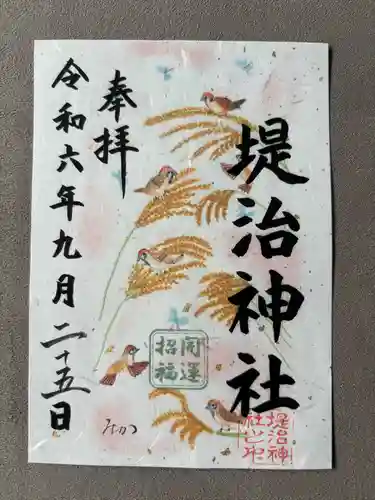 堤治神社
奉拝
令和六年九月二十五日
開運
招福
堤治神
社之印